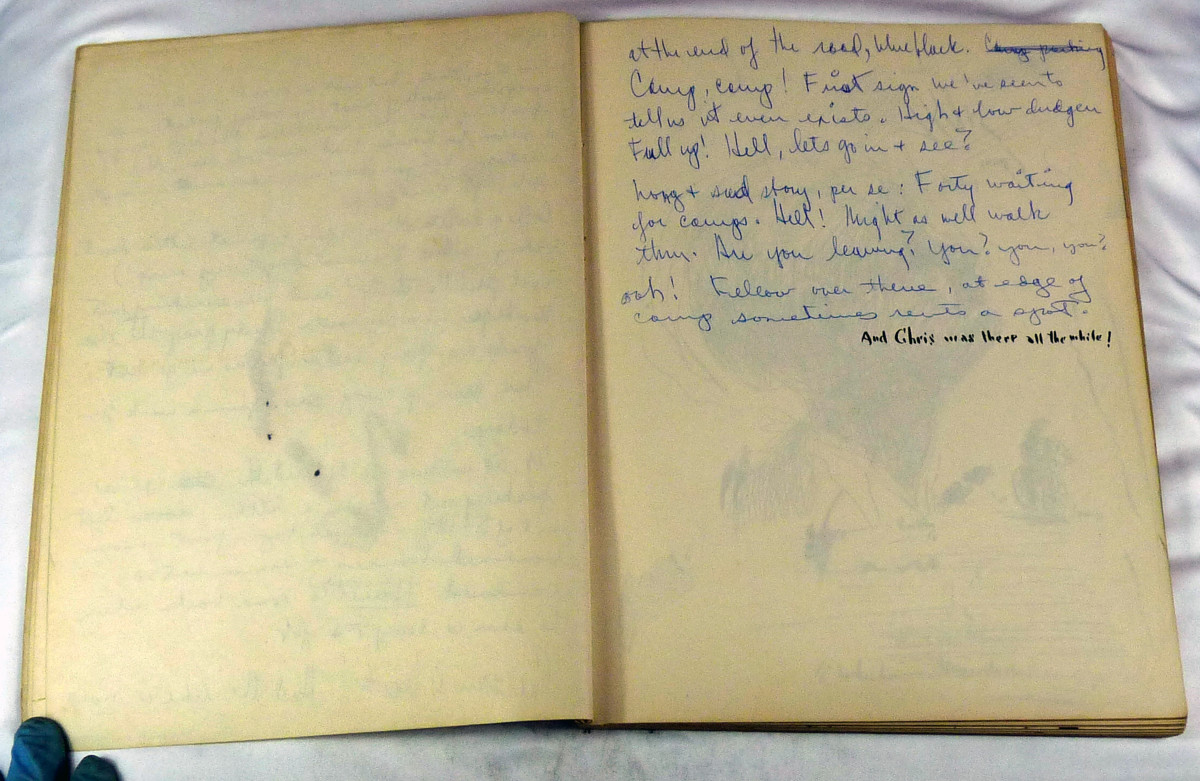 at the end of the road, blueblack.
Camp, camp! First sign we've seen to
tell us it even exists. High & low dudgen
Full up! Hell, lets go in & see?
Long & sad story, per se: Forty waiting
for camps. Hell! Might as well walk
thru. Are you leaving? You? you, you?
ooh! Fellow over there, at edge of
camp sometimes rents a spot.
And Chris was there all the while!